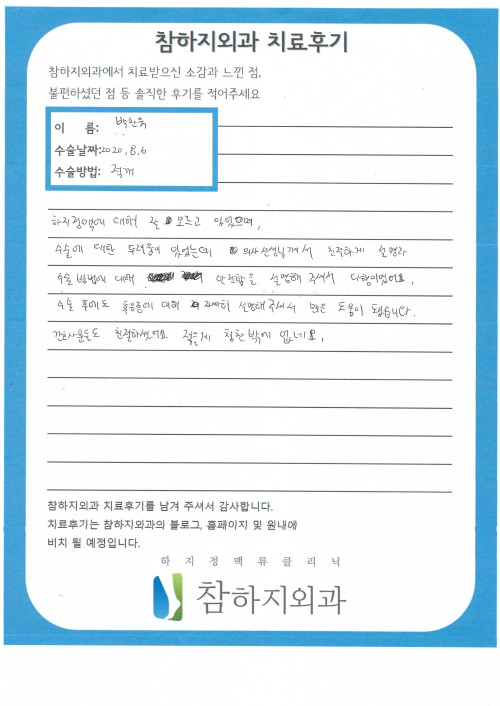 참하지외과 치료후기
참하지외과에서 치료받으신 소감과 느낀 점,
불편하셨던 점 등 솔직한 후기를 적어주세요
이 름: 박찬욱
수술날짜:2020, 8. 6
수술방법: 절개
하지정맥에 대해 잘 모르고 있었으며,
수술에 대한 두려움이 있었는데 의사선생님께서 친절하게 설명과
수술 방법에 대해 안전함을 설명해 주셔서 다행이었어요.
수술 후에도 후유증에 대해 자세히 설명해 주셔서 많은 도움이 됐습니다.
간호사분들도 친절하셨어요 칭찬밖에 없네요.
참하지외과 치료후기를 남겨 주셔서 감사합니다.
치료후기는 참하지외과의 블로그, 홈페이지 및 원내에
비치 될 예정입니다.
하지정맥류클리닉
참하지외과